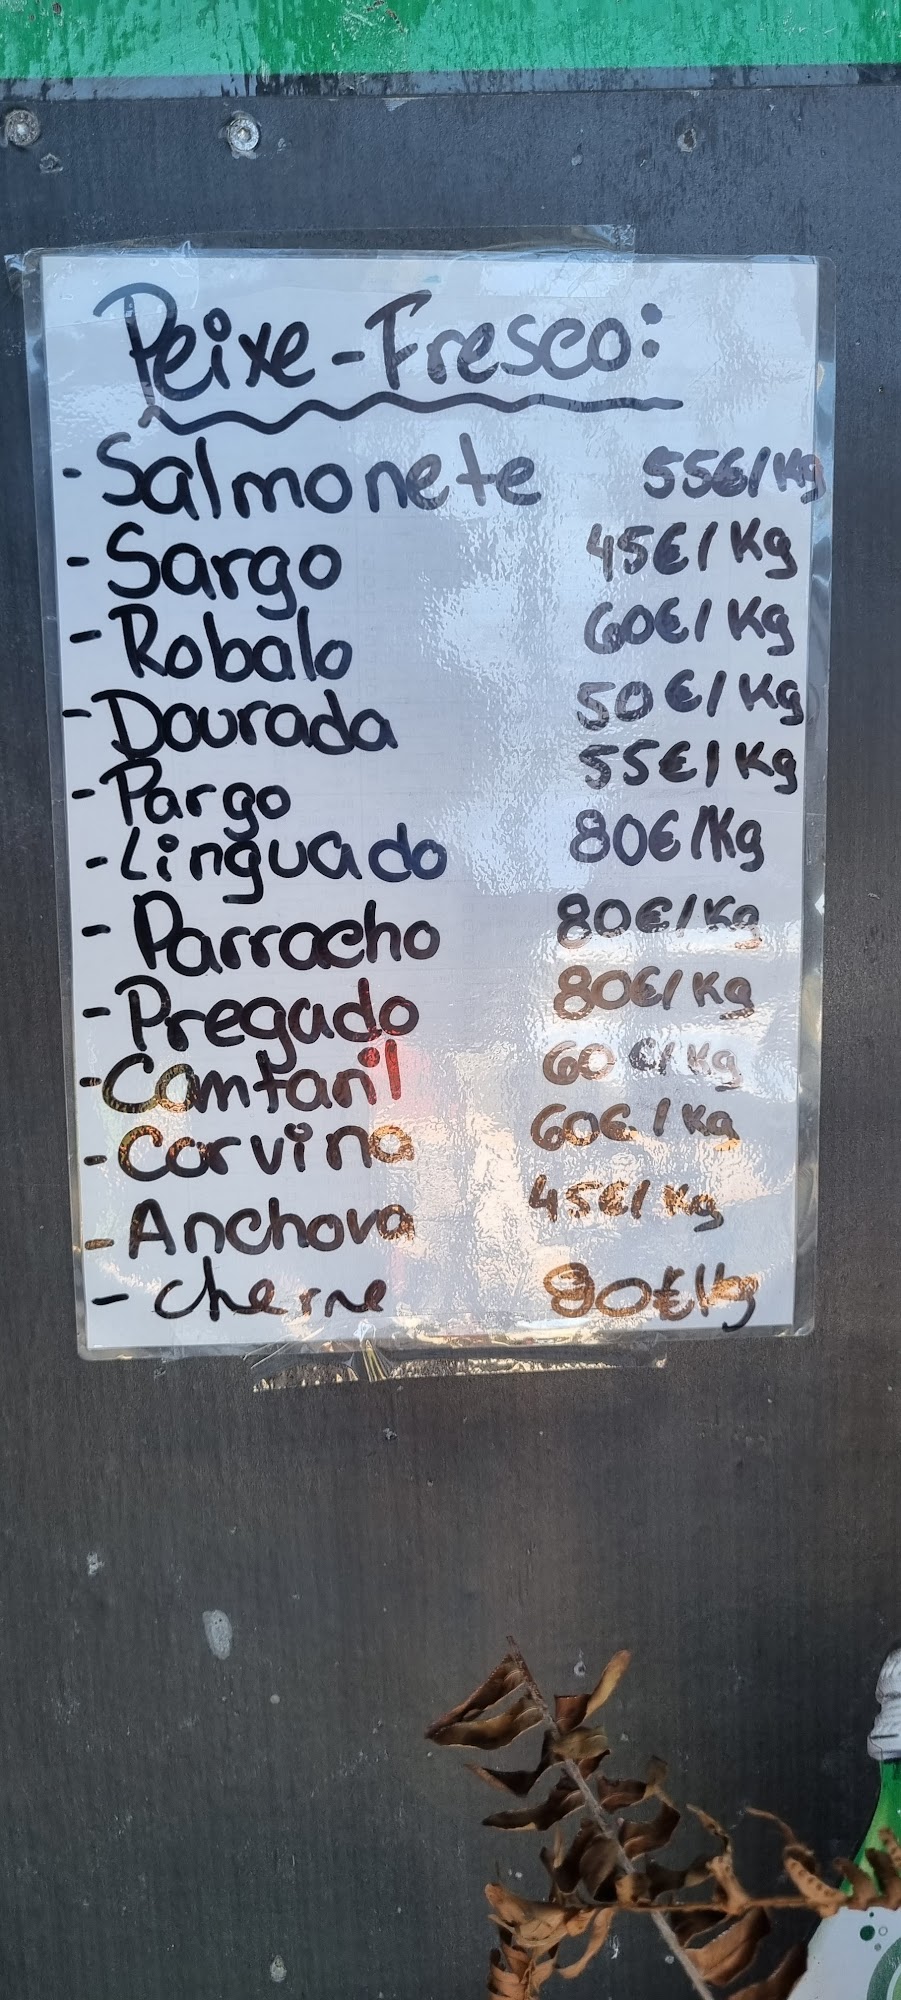 Peixe-Fresco:
- Salmonete 55€/Kg
- Sargo 45€/Kg
- Robalo 60€/Kg
- Dourada 50€/Kg
- Pargo 55€/Kg
- Linguado 80€/Kg
- Parracho 80€/Kg
- Pregado 80€/Kg
- Camtaril 60€/Kg
- Corvina 60€/Kg
- Anchova 45€/Kg
- cherne 90€/kg